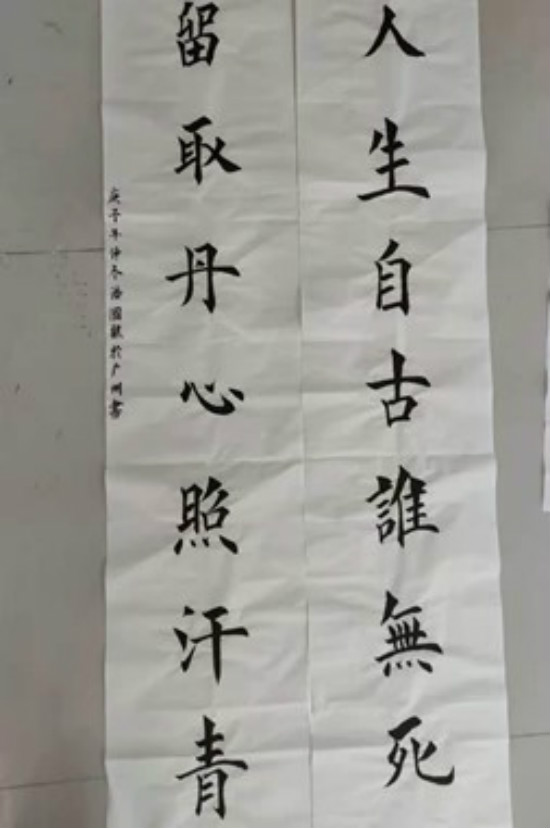 人生自古誰無死
留取丹心照汗青
庚子年仲冬潘國雄於广州書